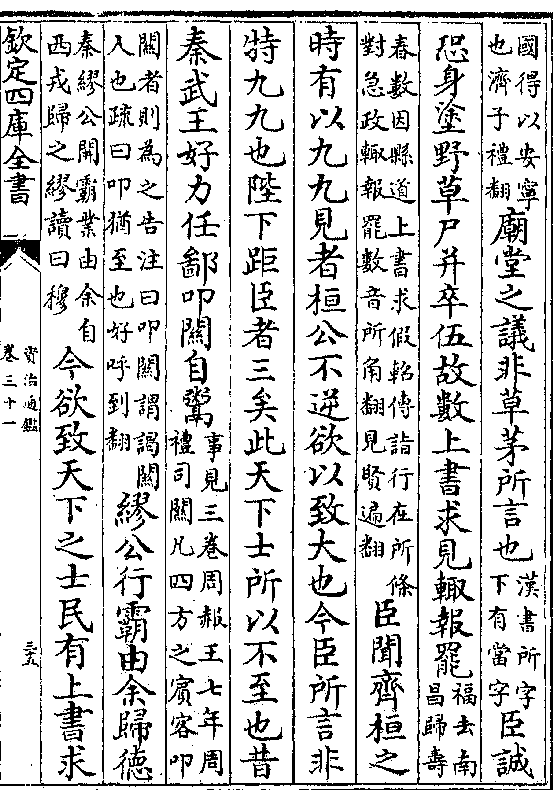 國得以安寧也濟子禮翻廟堂之議非草茅所言也漢書所字下有當字臣誠
恐身塗野草尸并卒伍故數上書求見輙報罷福去南昌歸壽
春數因縣道上書求假軺傳詣行在所條對急政輙報罷數音所角翻見賢遍翻臣聞齊桓之
時有以九九見者桓公不逆欲以致大也今臣所言非
特九九也陛下距臣者三矣此天下士所以不至也昔
秦武王好力任鄙叩關自鬻事見三卷周赧王七年周禮司關凡四方之賔客叩
關者則為之告注曰叩關謂謁關人也疏曰叩猶至也好呼到翻繆公行霸由余歸徳
秦繆公開霸業由余自西戎歸之繆讀曰穆今欲致天下之士民有上書求
欽定四庫全書
資治通鑑
卷三十一
三五